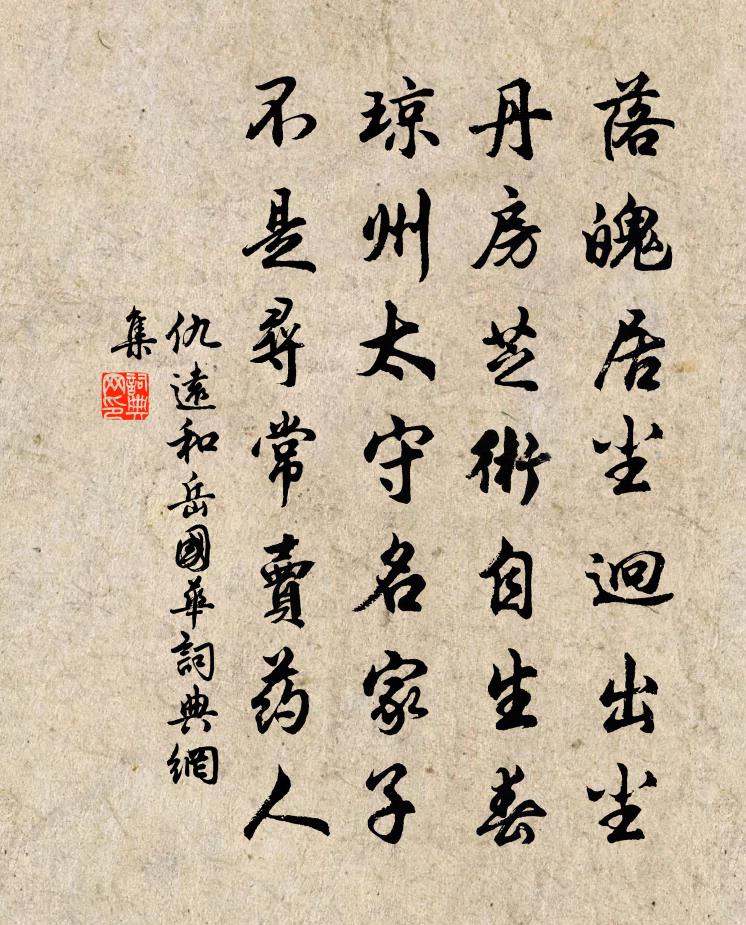 落魄居尘迥出尘
丹房芝術自生春
琼州太守名家子
不是尋常賣药人
仇遠和岳國華詞典網
集
詞典
网印